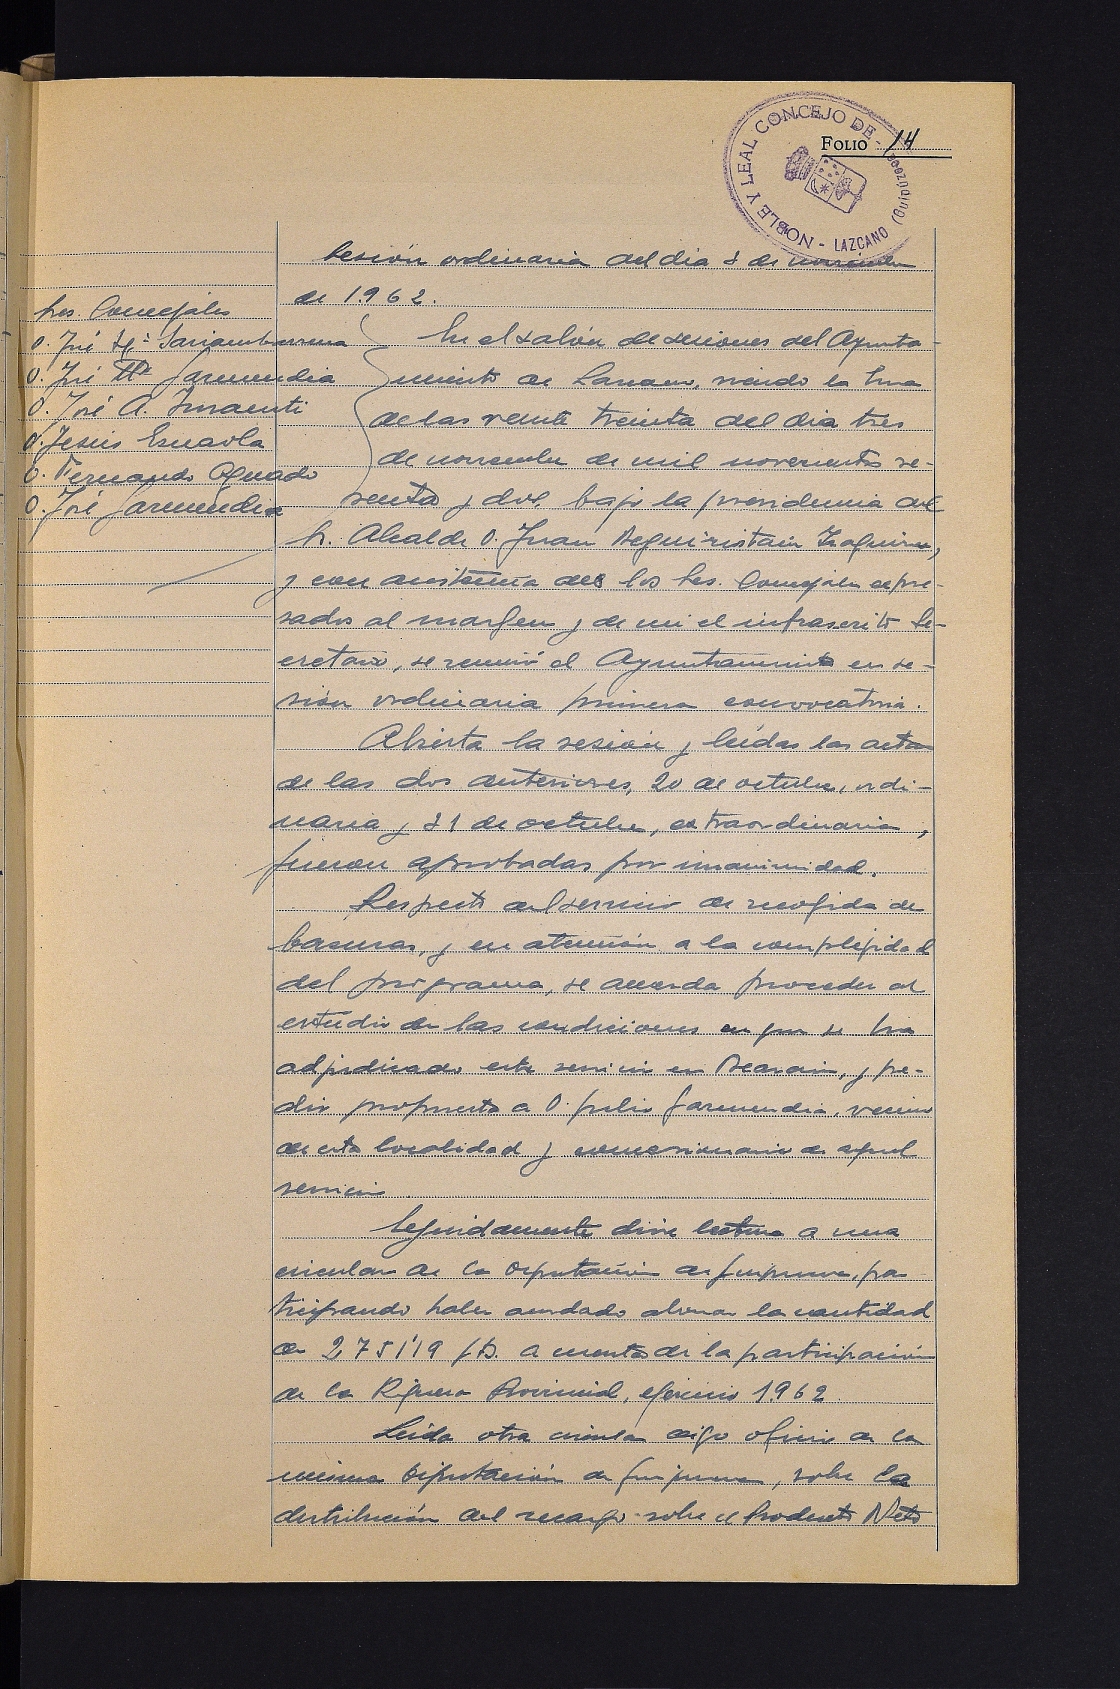 NOBLE Y LEAL CONCEJO DE - LAZCANO (Guipúzcoa)
FOLIO 14
Sesión ordinaria del dia 3 de noviembre
de 1.962.
Sres. Concejales
D. José Mª
D. José Garmendia
D. José A. Imaenti
D. Jesús
D. Fernando Aguado
D. José Garmendia
En el salón de sesiones del Ayunta-
miento de Lazcano, siendo la hora
de las veinte treinta del dia tres
de noviembre de mil novecientos se-
senta y dos, bajo la presidencia del
Sr. Alcalde D. Juan Aeguiristain
y con asistencia de los Sres. Concejales expre-
sados al margen y de mi el infrascrito Se-
cretario, se reunió el Ayuntamiento en se-
sión ordinaria primera convocatoria.
Abierta la sesión y leídas las actas
de las dos anteriores, 20 de octubre, ordi-
naria y 31 de octubre, extraordinaria,
fueron aprobadas por unanimidad.
Respecto al servicio de recogida de
basuras, y en atención a la complejidad
del programa, se acuerda proceder al
estudio de las condiciones en que se ha
adjudicado este servicio en Beasain, y pe-
dir propuesta a D. Julio Garmendia, vecino
de esta localidad y concesionario de aquel
servicio
Seguidamente dióse lectura a una
circular de la Diputación de Guipúzcoa, par
ticipando haber acordado abonar la cantidad
de 2,751'19 pts. a cuenta de la participación
de la Riqueza Provincial, ejercicio 1.962
Leída otra circular digo oficio de la
misma Diputación de Guipúzcoa, sobre la
distribución del recargo sobre el Producto Neto